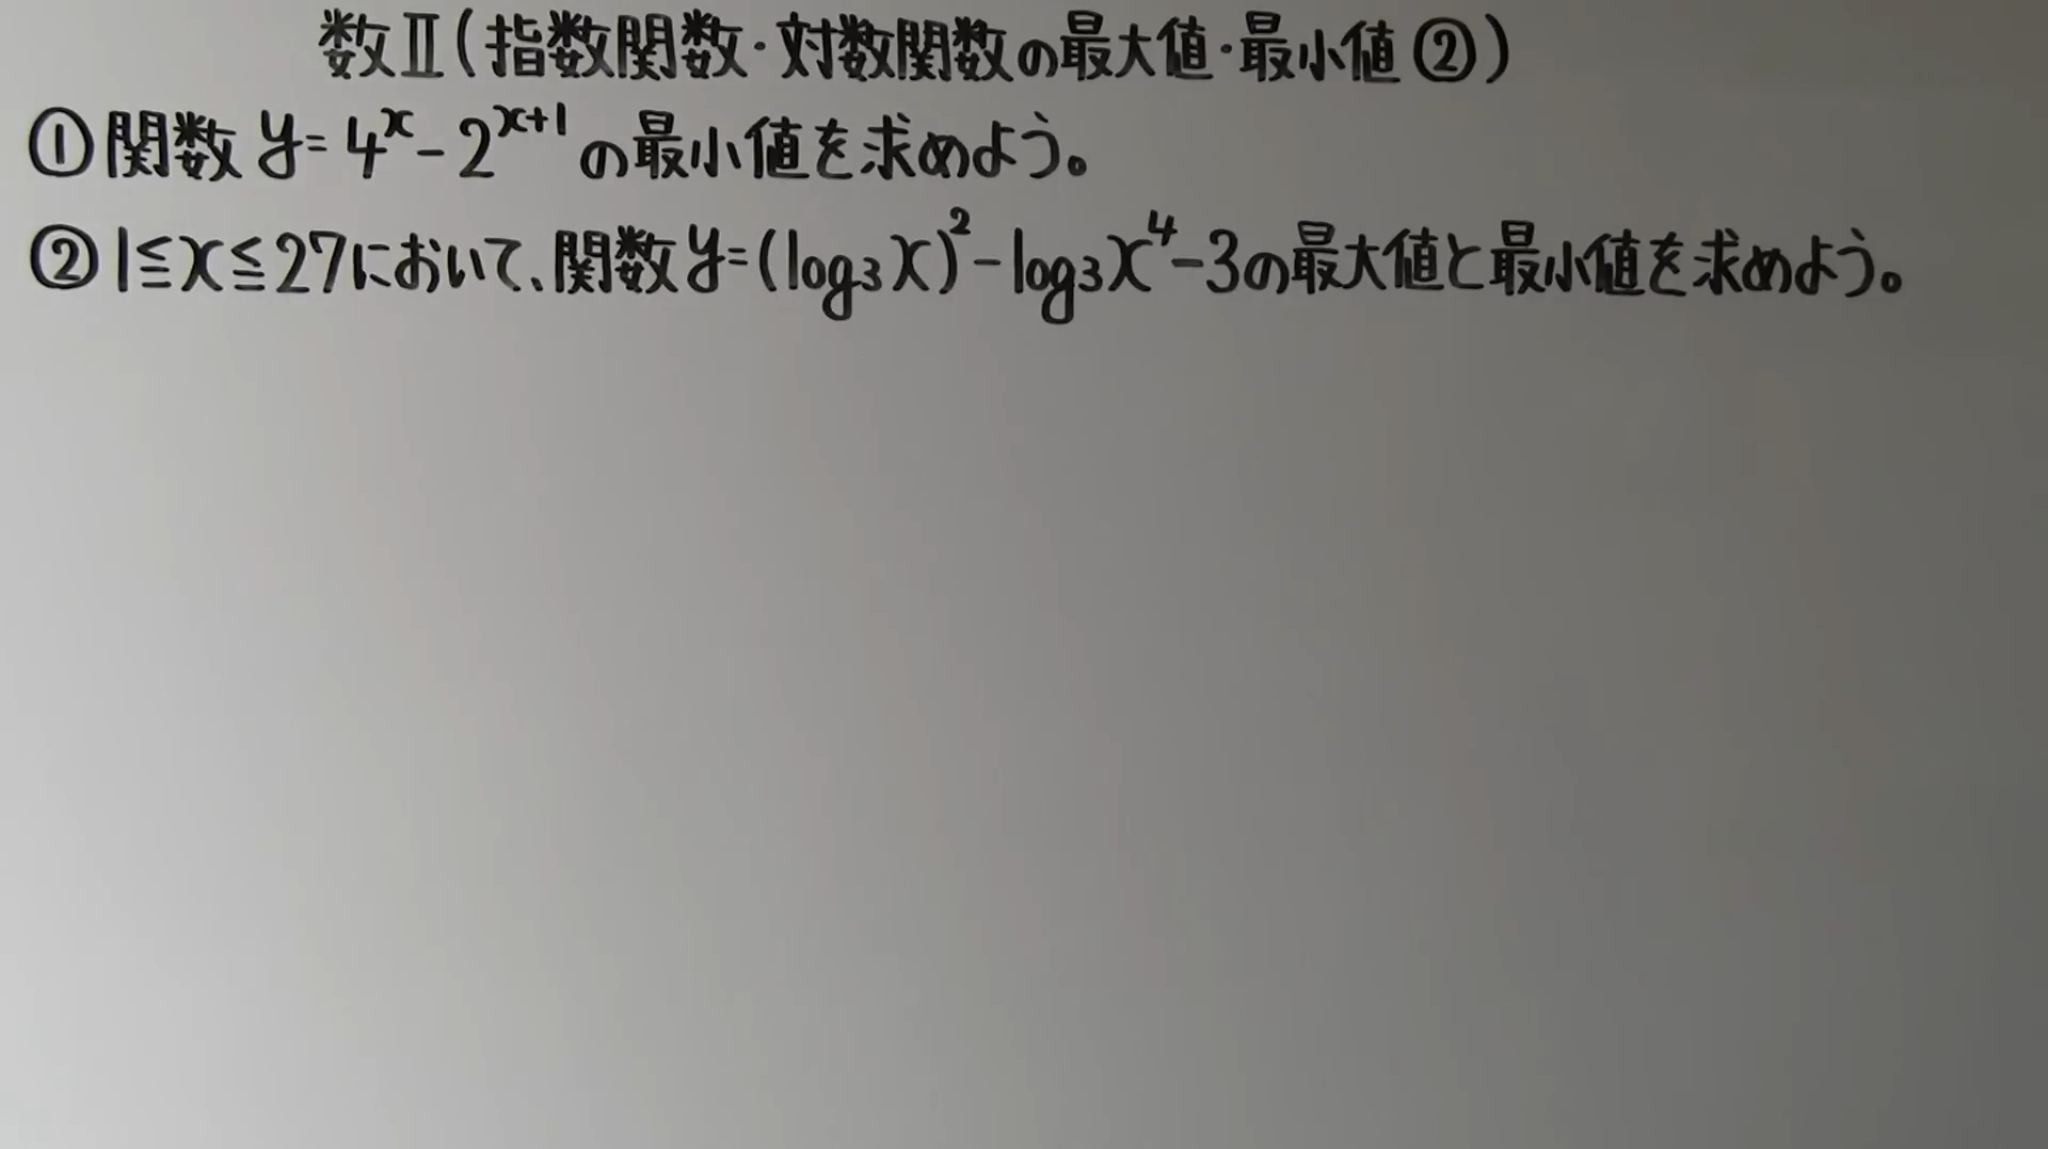 数Ⅱ(指数関数・対数関数の最大値・最小値②)
①関数 y=4ˣ-2ˣ⁺¹の最小値を求めよう。
②1≦x≦27において、関数y=(log₃x)²-log₃x⁴-3の最大値と最小値を求めよう。